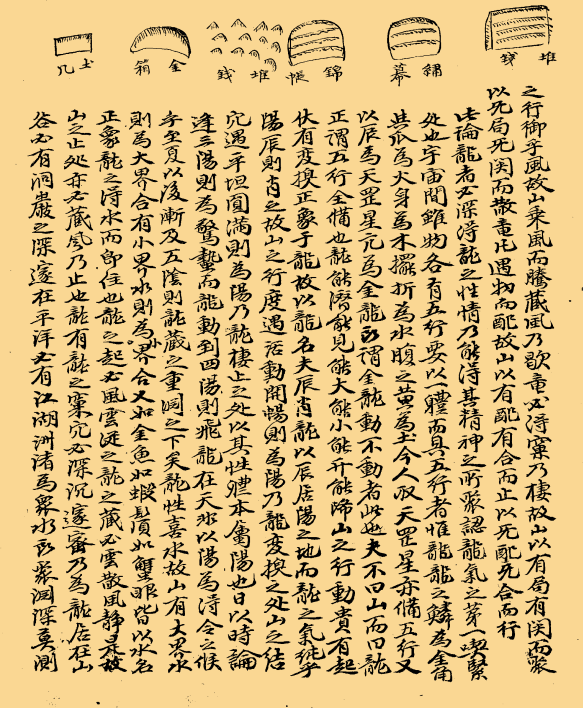 堆錢
繡幕
錦帳
堆錢
金箱
土几
之行御乎風故山乘風而騰藏風乃歇竜必得窠乃棲故山以有局有関而聚
以死局死関而散竜比遇物而配故山以有配有合而止以死配死合而行
此論龍者必深得龍之性情乃能得其精神之所聚認龍氣之茅一喫緊
处也宇宙間雖物各有五行要以一軆而具五行者惟龍龍之鱗為金角
共爪為火身為木擺折為水腹之黄為土今人取天罡星亦備五行又
以辰為天罡星亢為金龍所謂金龍動不動者此也夫不曰山而曰龍
正謂五行全備也龍能隱能見能大能小能升能降山之行動貴有起
伏有变換正象于龍故以龍名夫辰肖龍以辰居陽之地而龍之氣純乎
陽辰則肖之故山之行度遇活動開暢則為陽乃龍变換之处山之结
穴遇平坦圓滿則為陽乃龍棲止之处以其性軆本屬陽也日以時論
逢三陽則為驚蟄而龍動到四陽則飛龍在天水以陽為得令之候
至夏以後漸及五陰則龍藏之重淵之下矣龍性喜水故山有大界水
則為大界合有小界水則為小界合又如金魚如蝦鬚如蟹眼皆以水名
正象龍之得水而卽住也龍之起必風雲從之龍之藏必雲散風静是故
山之止处亦必藏風乃止也龍有龍之窠穴必深沉邃密乃為龍居在山
谷必有洞巖之深邃在平洋必有江湖洲渚為衆水所聚渊深莫測